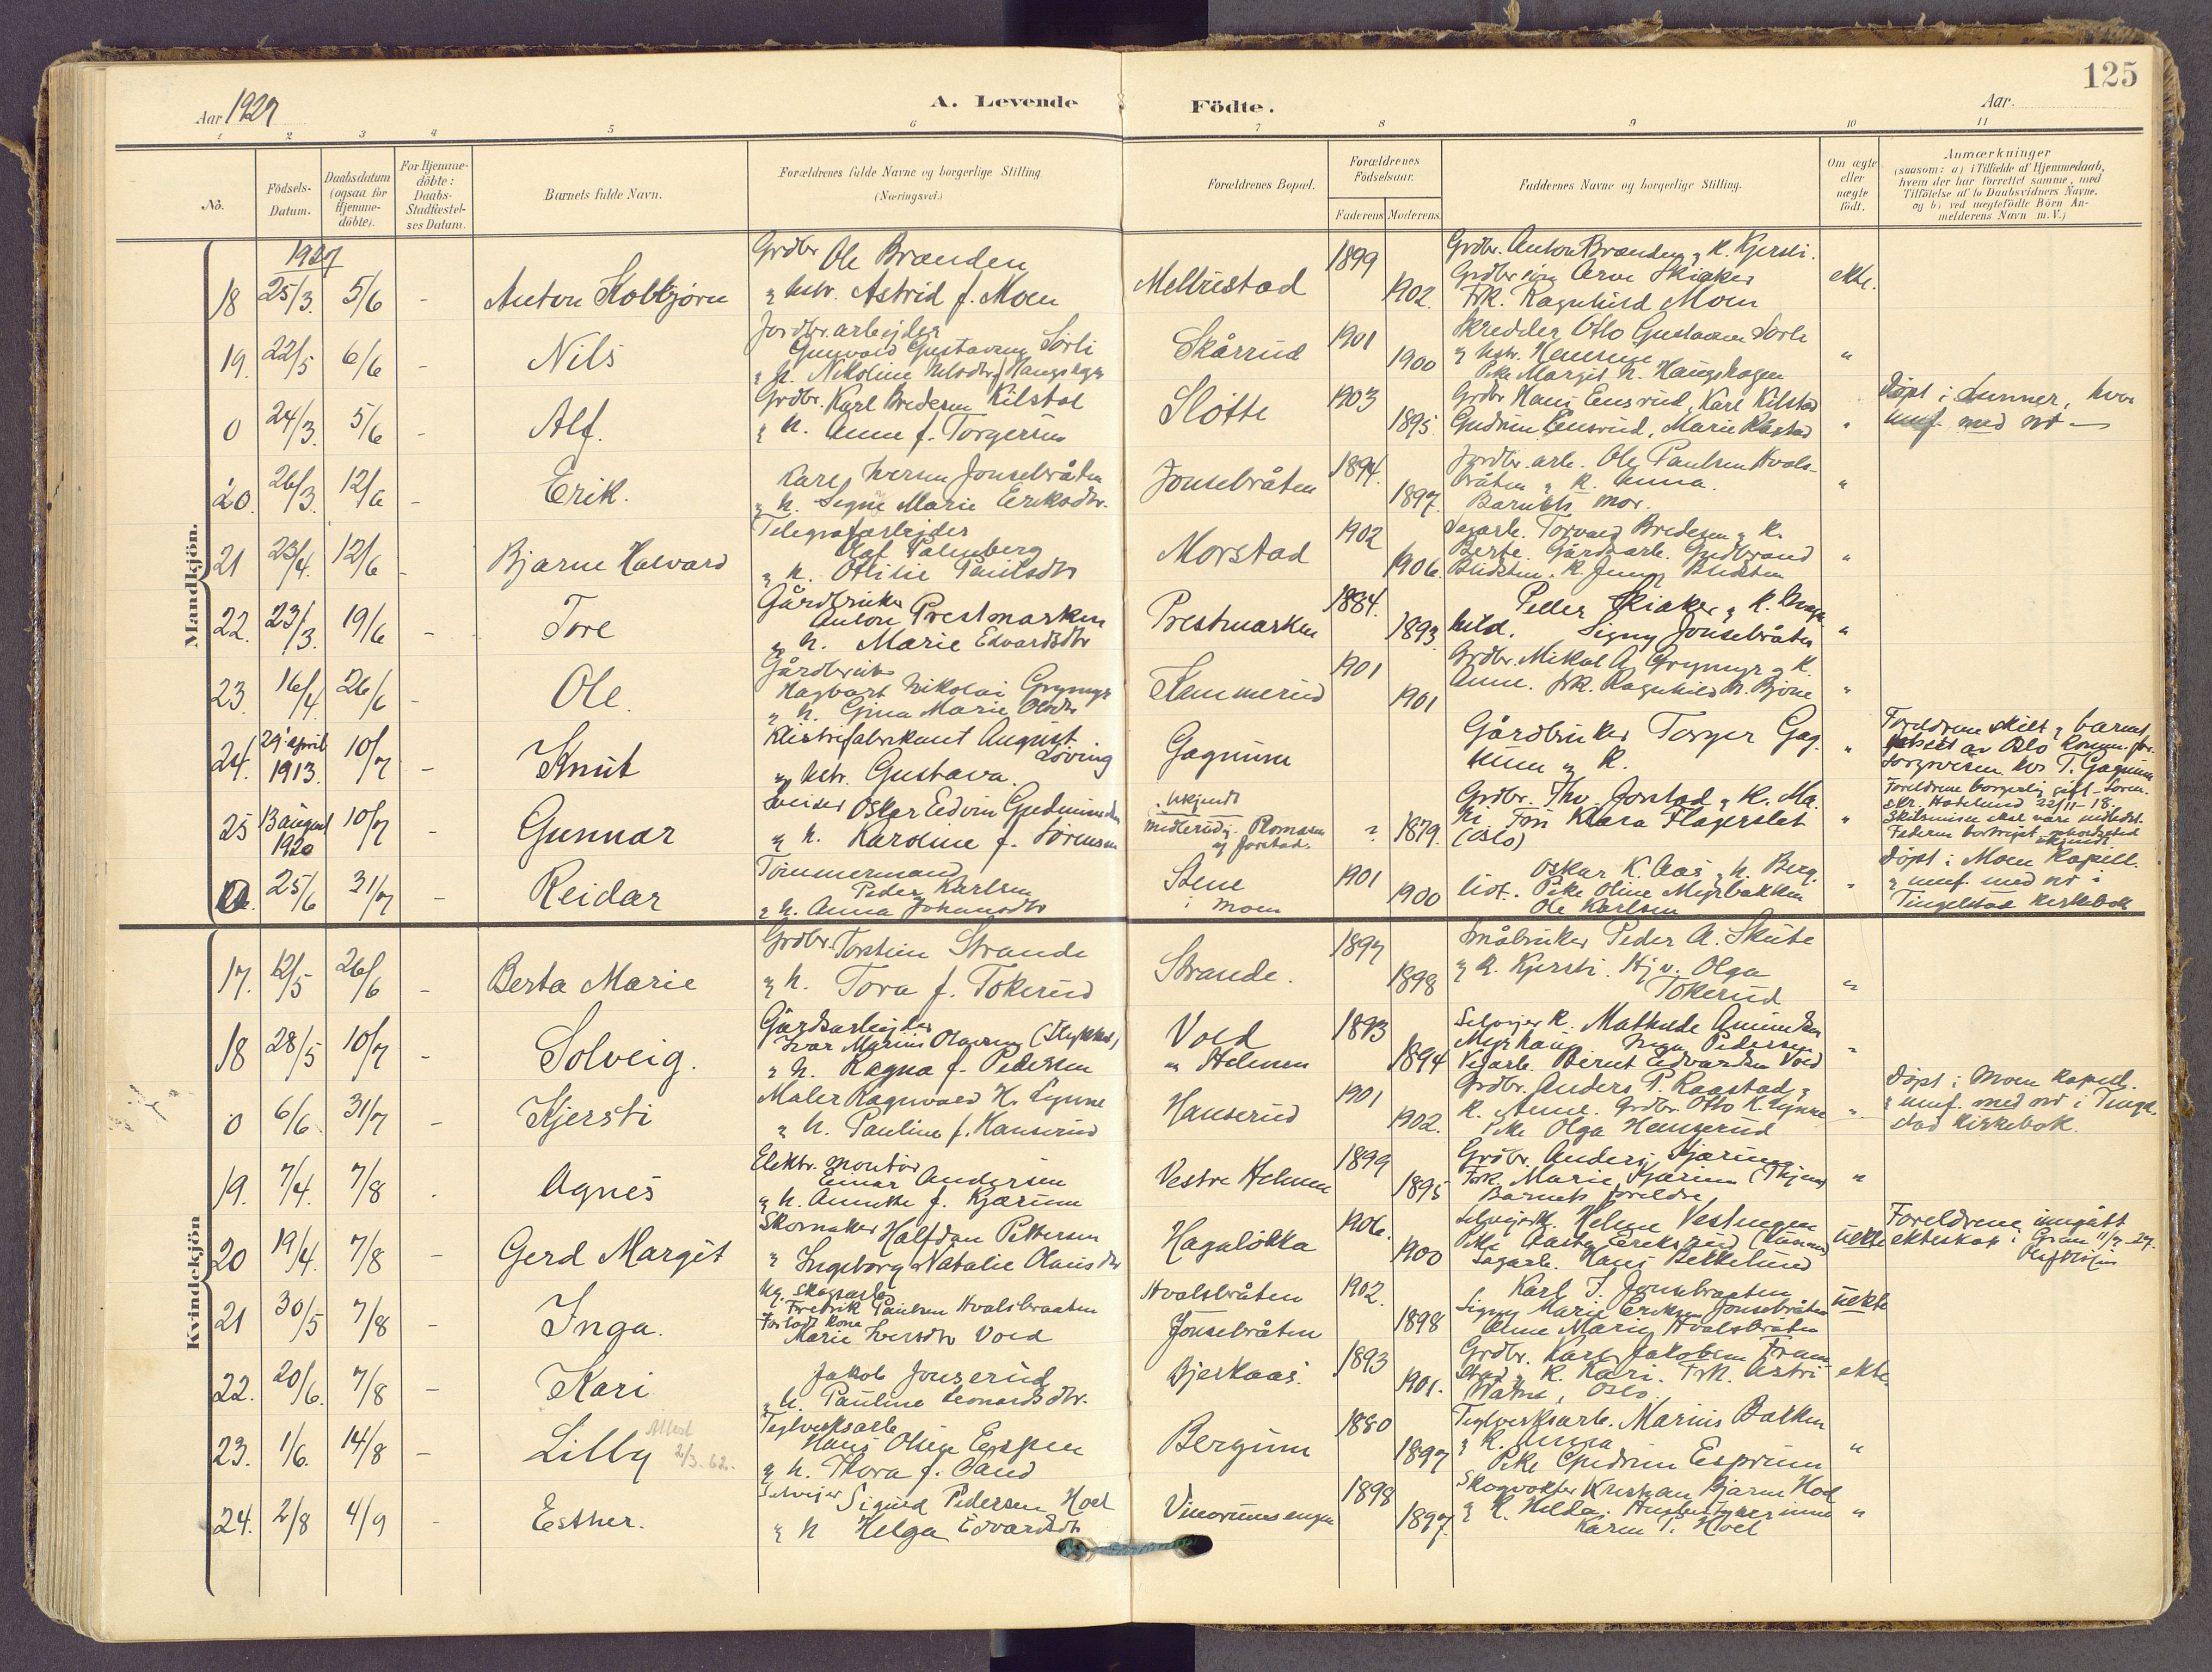 125
Aar 1927
A. Levende
Födte.
Aar.
1 2 3 4 5 6 7 8 9 10 11
No.
Födsels-Datum.
Daabsdatum (ogsaa for Hjemme-døbte).
For Hjemme-döbte: Daabs-Stadfæstel-ses Datum.
Barnets fulde Navn.
Forældrenes fulde Navne og borgerlige Stilling. (Næringsvei.)
Forældrenes Bopæl.
Forældrenes Födselsaar.
Faderens Moderens.
Faddernes Navne og borgerlige Stilling.
Om ægte eller uægte födt.
Anmærkninger
(saasom: a) i Tilfælde af Hjemmedaab,
hvem der har forrettet samme, med
Tilföielse af to Daabsvidners Navne.
og b) ved uægtefödte Börn An-
melderens Navn m. V.)
Mandkjön.
1927
18 25/3. 5/6 - Anton Kolbjørn
Grdbr Ole Brænden
& hstr. Astrid f. Moen
1899 1902.
Grdbr. Anton Brænden & K. Kjersti.
Grdbr søn Arve Skiaker
Frk. Ragnhild Moen
ekte.
19. 22/5 6/6 - Nils
Jordbr. arbejder
Gunvald Gustavsen Sørli
& h. Nikoline Nilsdtr f. Haugshagen
Skårrud 1901 1900
Skredder Otto Gustavsen Sørli
& hstr.
Pike Margit N. Haugshagen
"
0 24/3. 5/6 - Alf.
Grdbr. Karl Bredesen Kilstad
& h. Anne f. Torgersen
Sløtte 1903 1895.
Grdbr Hans Eensrud, Karl Kilstad
Gudrun Eensrud, Marie
"
Døpt i Lunner, hvor
innf. med nr —
20. 26/3. 12/6 - Erik.
Karl Iversen Jonsebråten
& h. Signe Marie Eriksdtr.
Jonsebråten 1894. 1897.
Jordbr. arb. Ole Paulsen Hvals-
bråten & K. Anna.
Barnets mor.
"
21 23/4. 12/6 - Bjarne Halvard
Telegrafarbejder
Olaf Palmberg
& h. Otilie Paulsdtr
Morstad 1902 1906.
Sagarb. Torvald Bredesen & K.
Berte. Gårdsarb. Gudbrand
K. Jenny
"
22. 23/3. 19/6 - Tore
Gårdbruker
Anton Prestmarken
& h. Marie Edvardsdtr
Prestmarken 1884. 1893.
Peder Skiaker & K.
hild. Signy Jonsebråten
"
23. 16/4. 26/6 - Ole.
Gårdbruker
Hagbart Nikolai Grymyr
& h. Gina Marie Olsdtr
Flammerud 1901 1901
Grdbr. Mikal A. Grymyr & K.
Anne. Frk. Ragnhild
"
24. 29' april 1913. 10/7 - Knut
August Løving
& hstr. Gustava.
Gagnum
Gårdbruker Torger Gag-
num & K.
"
Foreldrene skilt & barnet
av Oslo komm. for-
sorgsvesen hos T. Gagnum
25 13 august 1920 10/7 - Gunnar
Sveiser Oskar Edvin Gudmundsen
& h. Karoline f. Sørensen
ukjendt
? 1879.
Grdbr. Thv. Jorstad & K. Ma-
ri. Frk Klara Flagerslet
(Oslo)
"
Foreldrene borgerlig gift
22/11-18.
Faderen bortreist, opholdssted
ukjendt
0. 25/6 31/7 - Reidar
Tømmermand
Peder Karlsen
& h. Anna Johansdtr
Stene
i Moen
1901 1900
Oskar K. Aas & h. Berg-
liot. Pike Oline Myrbakken
Ole Karlsen
"
Døpt i Moen Kapell.
& innf. med nr i
Tingelstad kirkebok
Kvindekjön
17. 12/5 26/6 - Berta Marie
Grdbr. Torstein Strande
& h. Tora f. Tokerud
Strande. 1897 1898
Småbruker Peder A. Skute
& K. Kjersti. Hjv. Olga
Tokerud
"
18 28/5 10/7 - Solveig.
Gårdsarbejder
Ivar Marius Olausen
& h. Ragna f. Pedersen
Vold
Helmen
1893 1894
Selvejer K. Mathilde Amundsen
Myrhaug Inga Pedersen
Vejarb. Bernt Edvardsen Vold
"
0 6/6. 31/7 - Kjersti
Maler Ragnvald H. Lynne
& h. Pauline f. Hanserud
Hanserud 1901 1902.
Grdbr. Anders P. Raastad &
K. Anne. Grdbr. Otto K. Lynne
Pike Olga Hanserud
"
Døpt i Moen Kapell.
& innf. med nr i Tingel-
stad kirkebok.
19. 7/4. 7/8 - Agnes
Elektr. montør
Einar Andersen
& h. Annette f. Kjærum
Vestre Helmen 1899 1895
Grdbr. Anders Kjærum
Frk Marie Kjærum
Barnets foreldre
"
20 19/4. 7/8 - Gerd Margit
Skomaker Halfdan Pettersen
" Ingeborg Natalie Olausdtr
Hagaløkka 1906. 1900
Helene Vestengen
Pike Aasta Eriksrud
Sagarb. Hans Bekkelund
uekte
Foreldrene inngått
ekteskap i Gran 11/9 27.
21 30/5 7/8 - Inga.
Ug. skogsarb.
Fredrik Paulsen Hvalsbraaten
Forladt kone
Marie Iversdtr Vold
Hvalsbråten
Jonsebråten
1902. 1898
Karl I. Jonsebraaten
Signy Marie Eriksen Jonsebråten
Anne Marie Hvalsbråten
uekte
22. 20/6. 7/8 - Kari
Jakob Jonserud
& h. Pauline Leonardsdtr.
Bjerkaas. 1893 1901.
Grdbr. Karl Jakobsen Fram-
stad & K. Kari. Frk. Astri
Oslo.
ekte
23. 1/6. 14/8 - Lilly
Attest
2/3-62.
Teglverksarb.
Hans Olsen Espen
& h. Thora f. Sand
Bergum 1880 1897
Teglverksarb. Marius Bakken
& K. Anna
Pike Gudrun Esprum
"
24. 2/8 4/9 - Esther.
Selvejer Sigurd Pedersen Hoel
& h Helga Edvardsdtr
Vinorumsengen 1898 1897.
Skogvokter Kristian Bjarne Hoel
& K. Hilda. Husbestyrerinne
Karen P. Hoel
"